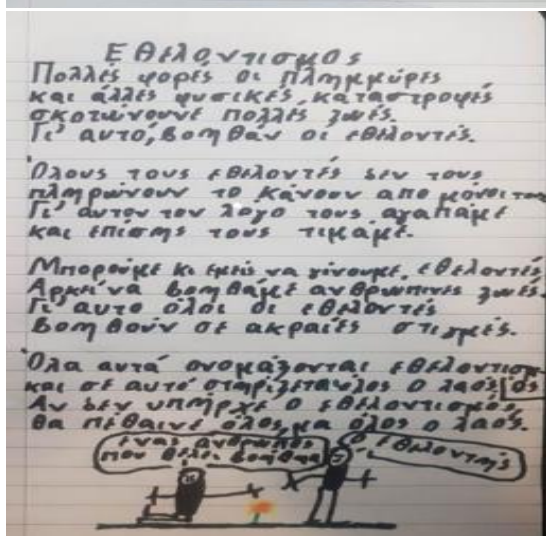 Εθελοντισμός
Πολλές φορές οι πλημμύρες
και άλλες φυσικές καταστροφές
σκοτώνουνε πολλές ζωές.
Γι' αυτό, βοηθάν οι εθελοντές.
Όλους τους εθελοντές δεν τους
πληρώνουν το κάνουν απο μόνοι τους
Γι' αυτον τον λόγο τους αγαπάμε
και επίσης τους τιμάμε.
Μπορούμε κι εμείς να γίνουμε, εθελοντές
Αρκεί να βοηθάμε ανθρώπινες ζωές.
Γι' αυτο όλοι οι εθελοντές
βοηθούν σε ακραίες στιγμές.
Όλα αυτά ονομάζονται εθελοντισμ
και σε αυτό στηρίζεται όλος ο λαός ός
Αν δεν υπήρχε ο εθελοντισμός,
θα πέθαινε όλος, μα όλος ο λαός.
ένας άνθρωπος
που θέλει βοήθεια
Ο εθελοντής